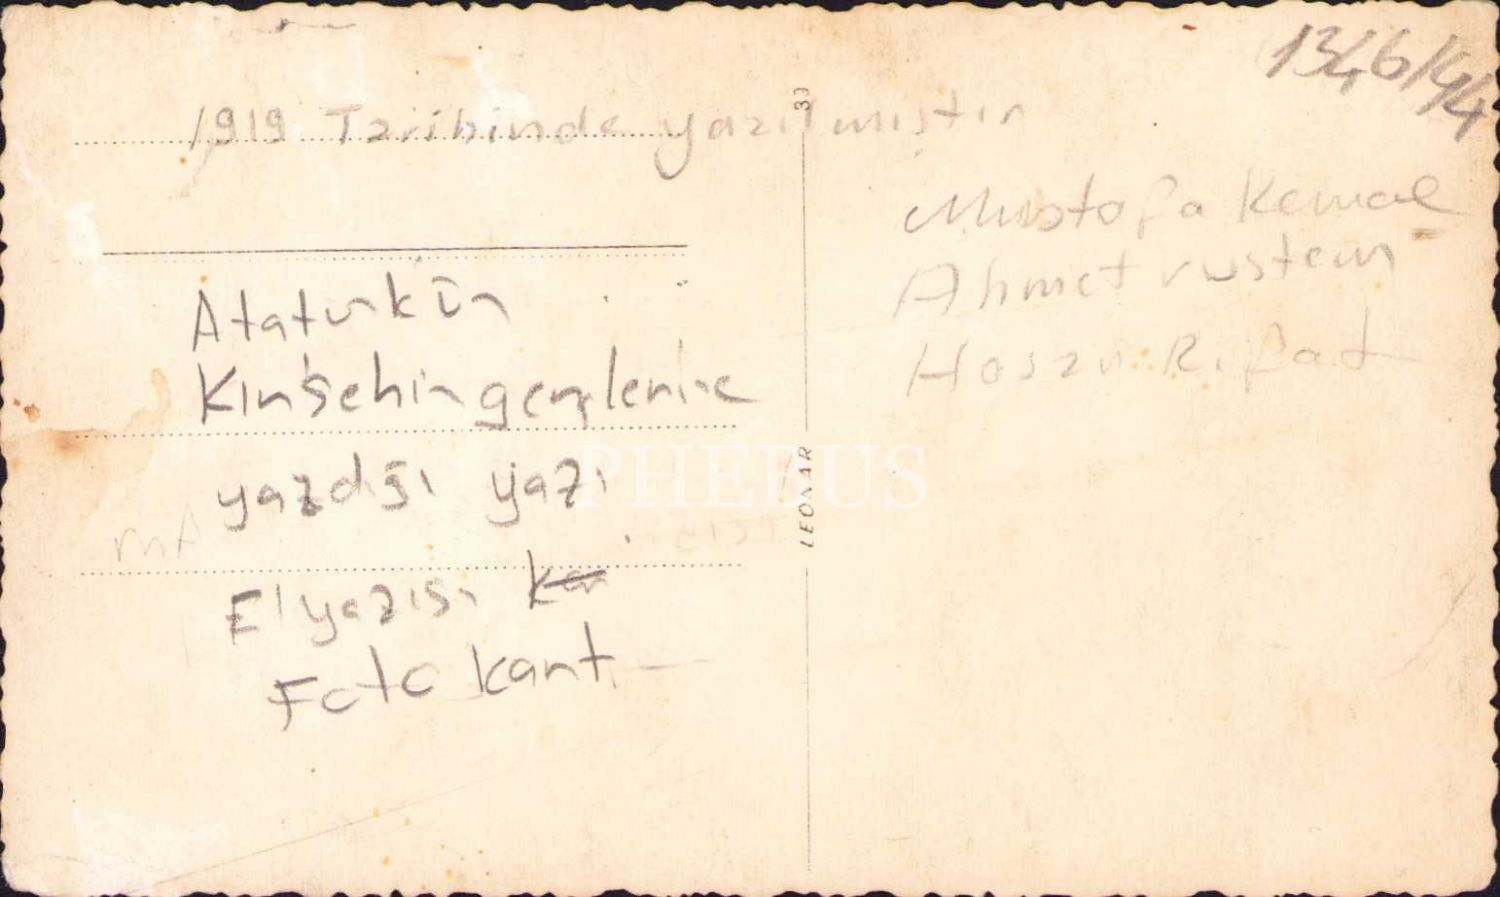 1346/44
1919 Tarihinde yazılmıştır
Mustafa Kemal
Ahmet rustem
Hosan Rifad
Ataturkün
Kırşehir gençlerine
yazdğı yazı
El yazısı
Foto kart
LEONAR
PHEBUS